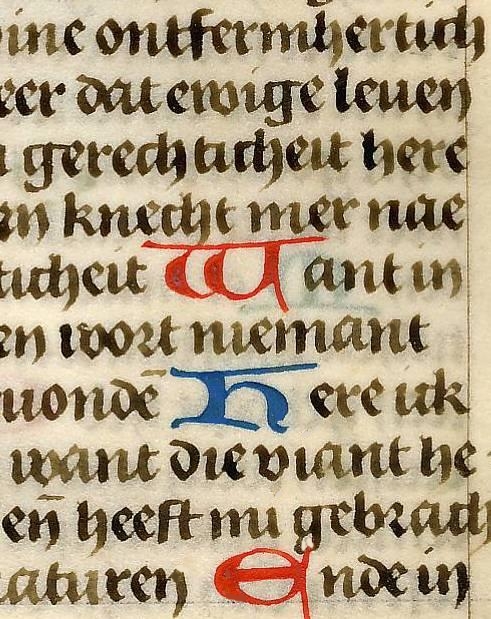 ine ontfermhertich
eer dat ewige leuen
gerechticheit here
en knecht mer nae
ticheit Want in
en wort niemant
uondē Here ick
want die viant he
eñ heeft mi gebrach
aturen Ende in